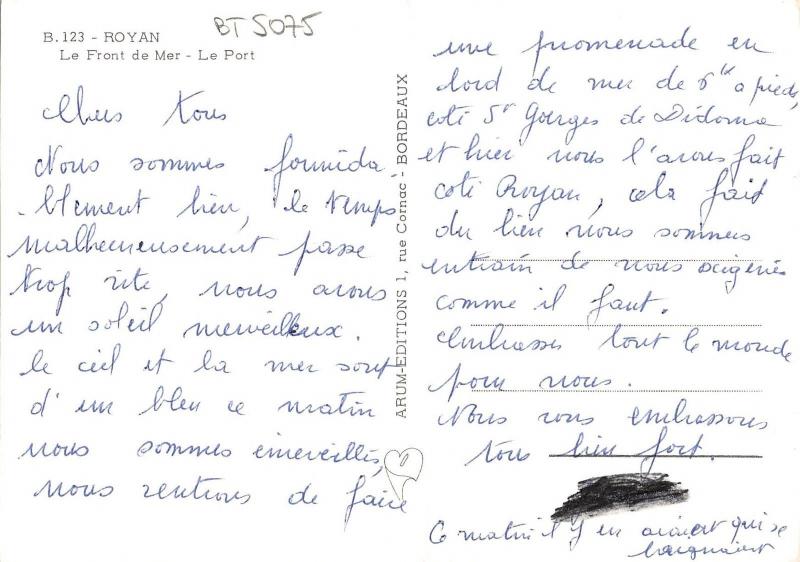 BT 5075
B. 123 - ROYAN
Le Front de Mer - Le Port
Chers Tous
Nous sommes formida-
-blement bien, le temps
malheureusement passe
trop vite, nous avons
un soleil merveilleux.
le ciel et la mer sont
d'un bleu ce matin
nous sommes émerveillés,
nous rentrons de faire
ARUM-EDITIONS 1, rue Cornac - BORDEAUX
une promenade en
bord de mer de a pieds,
coté St Gorges de Didonne
et hier nous l'avons fait
coté Royan, cela fait
du bien nous sommes
entrain de nous oxigénés
comme il faut.
Embrasses tout le monde
pour nous.
Nous vous embrassons
tous bien fort.
Ce matin il y en avaient qui se
baignaient